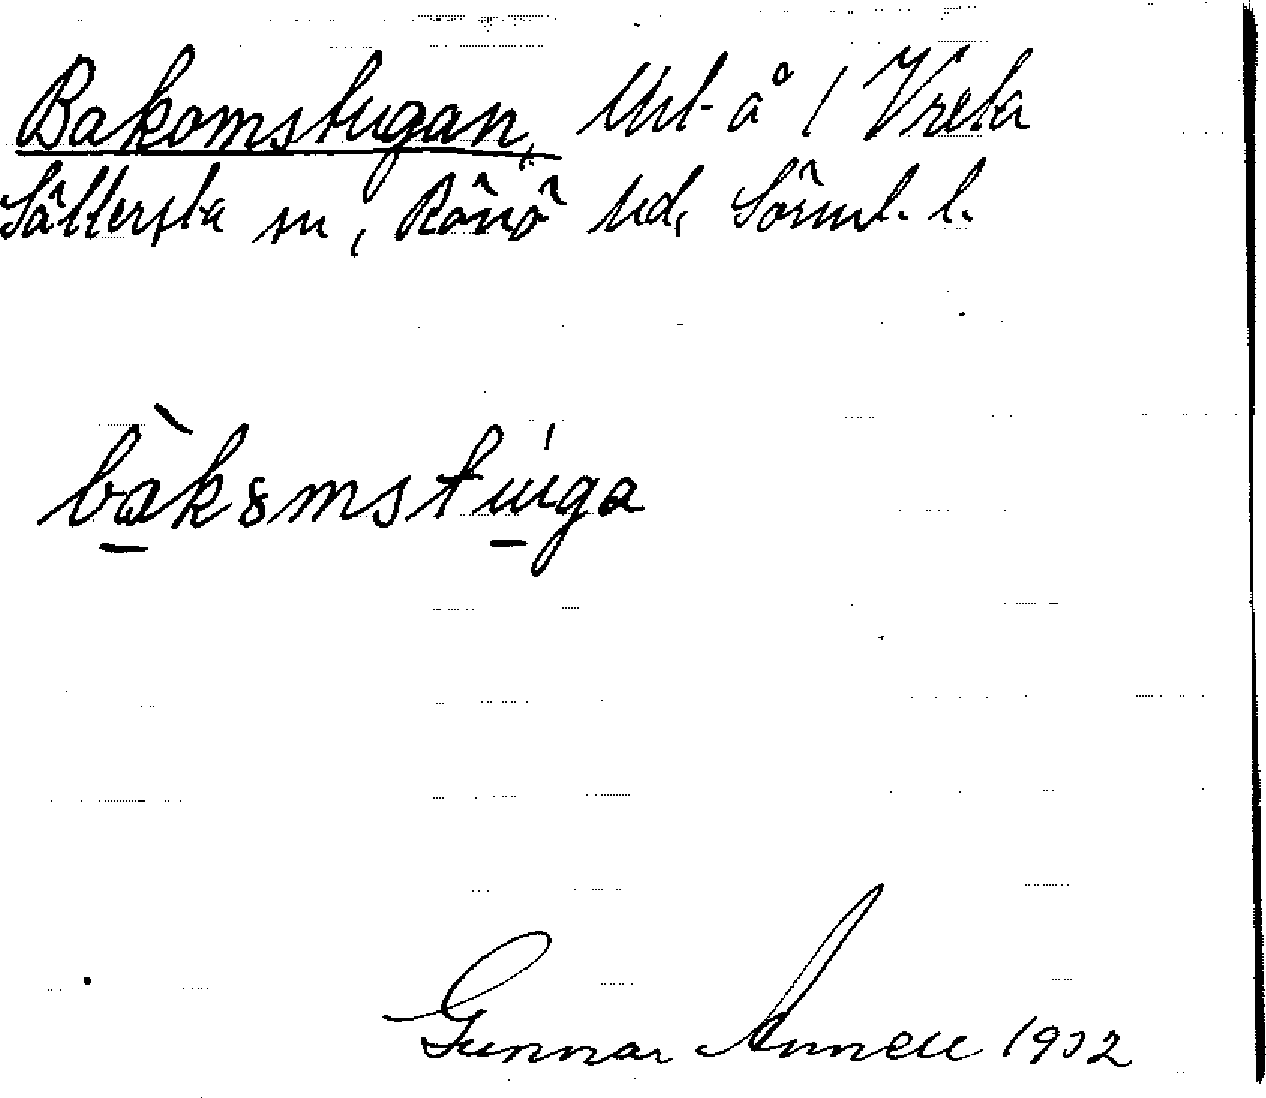 Bakomstugan, Utl å / Vreta
Sättersta sn, Rönö hd, Sörml. l.
bàkomstúga
Gunnar Annell 1932